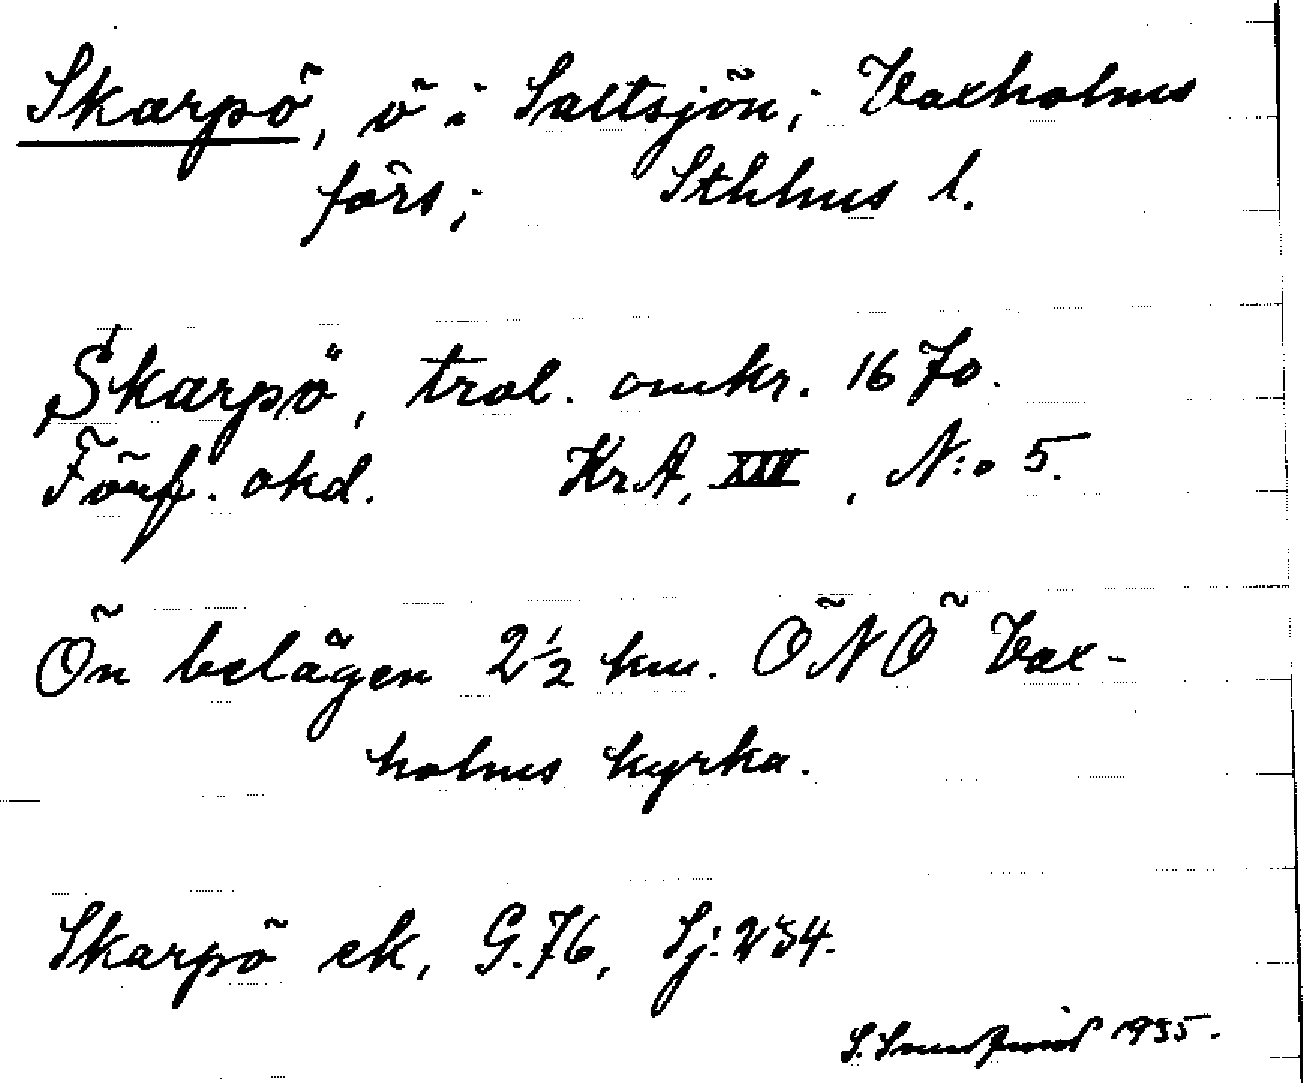 Skarpö, ö i Saltsjön; Vaxholms
förs; Sthlms l.
Skarpö, trol. omkr. 1670.
Förf. okd. KrA, XXII, N:o 5.
Ön belägen 2½ km. ÖNÖ Vax-
holms kyrka.
Skarpö ek, G.76, Sj: 254.
S. 1935.